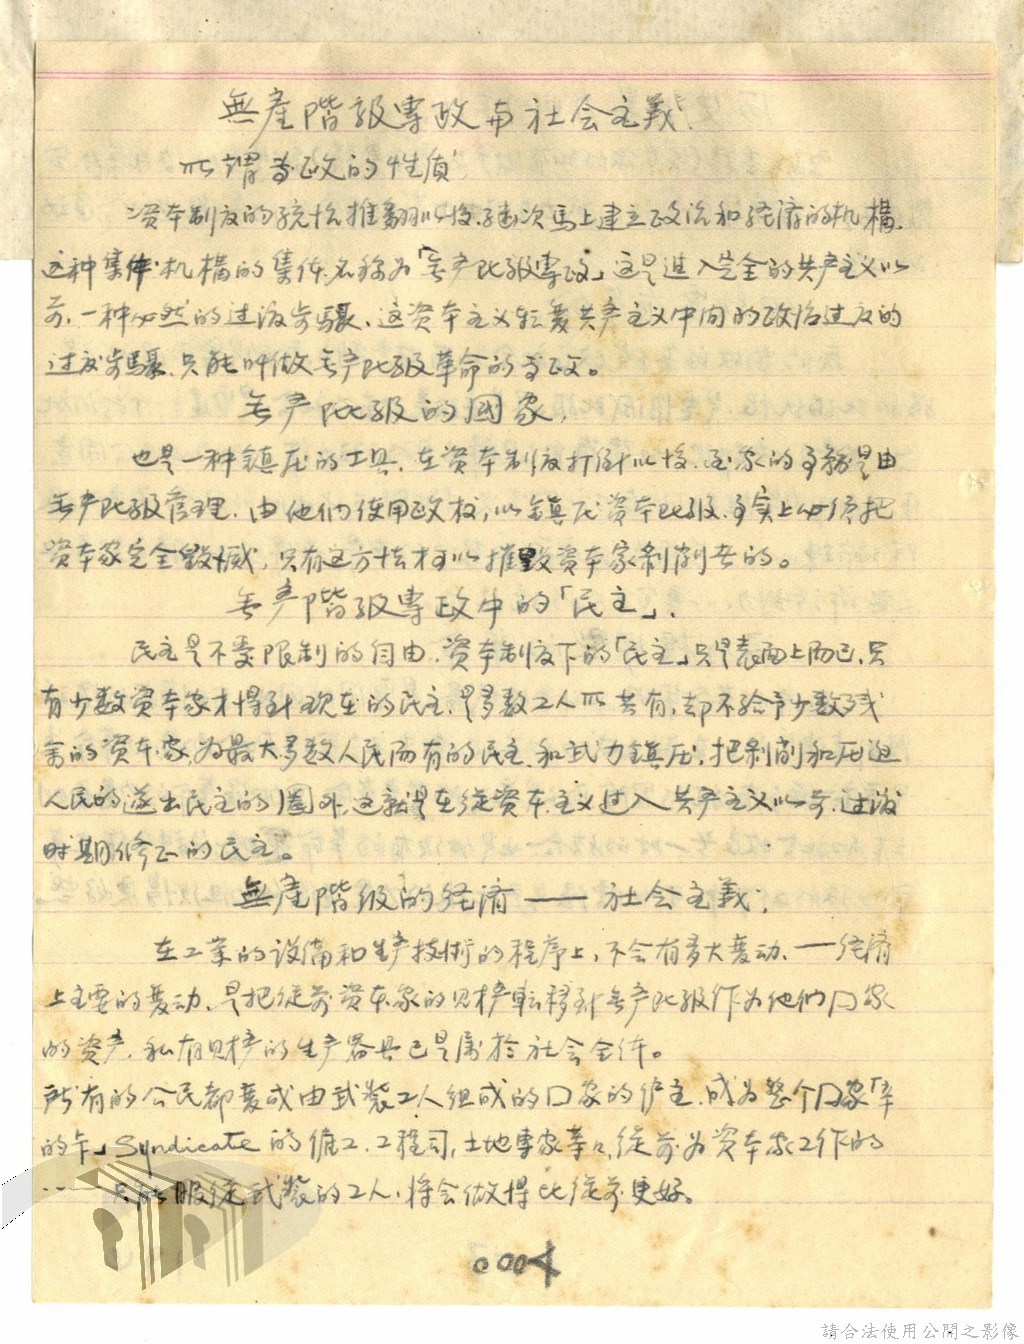 無產階級專政与社会主義
所謂专政的性质
资本制度的统治推翻以後,继次馬上建立政治和経済的机構,
这种集体机構的集体名称为「无产阶级專政」这是進入完全的共产主义以
前,一种必然的过渡步驟,这资本主义転变共产主义中间的政治过度的
过渡步驟,只能叫做无产阶级革命的专政。
无产阶级的國家,
也是一种鎮压的工具,在资本制度打倒以後,国家的事務是由
无产阶级管理,由他們使用政权,以鎮压资本阶级,事实上必须把
资本家完全毀滅,只有这方法才可以摧毀资本家剥削者的。
无产階级專政中的「民主」.
民主是不受限制的自由,资本制度下的「民主」只是表面上而已,只
有少数资本家才得到 现在的民主,是多数工人所共有,却不給予少数残
余的资本家,为最大多数人民而有的民主,和武力鎮压,把剥削和压迫
人民的逐出民主的圈外,这就是在從资本主义过入共产主义以前,过渡
时期修正的民主。
無產階级的経済——社会主義,
在工業的设备和生产技術的程序上,不会有多大变动,一经済
上主要的变动,是把從前资本家的财产転移到无产阶级作为他們囗家
的资产,私有财产的生产器具已是属於社会全体。
所有的公民都变成由武装工人组成的囗家的雇主,成为整个囗家「辛
的卡」Syndicate 的傭工,工程司,土地專家等々,從前为资本家工作的
……只能服從武装的工人,将会做得比從前更好。
0004
請合法使用公開之影像